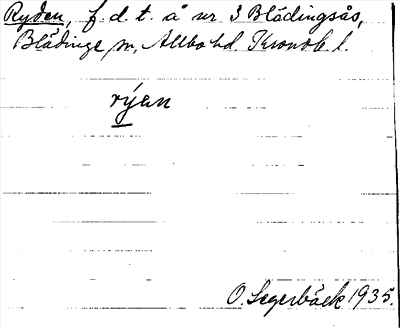 Ryden, f. d. t. å nr 3 Blädingsås,
Blädinge sn, Allbo hd Kronob. l.
rýən
O. Segerbäck 1935.